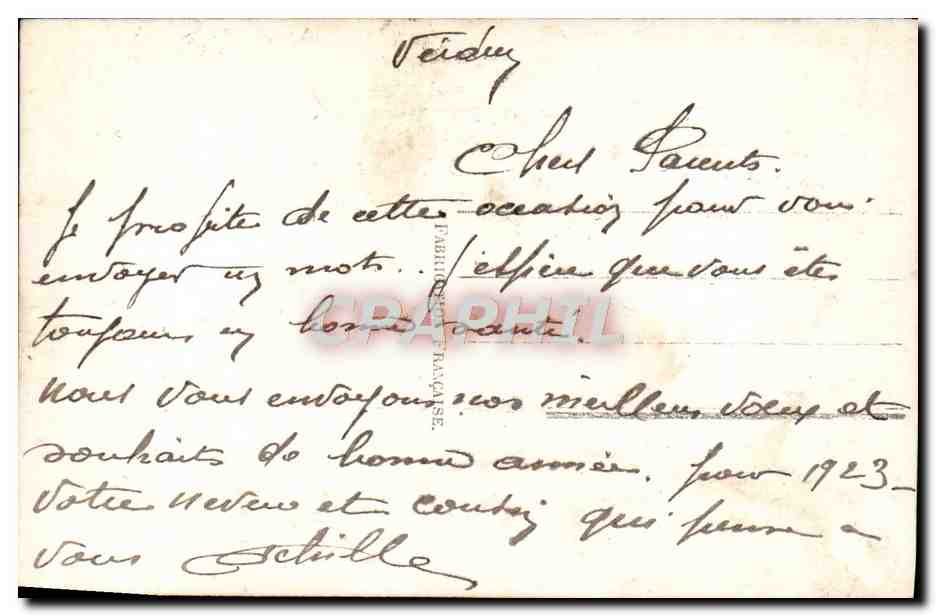 Chers Parents.
Je profite de cette occasion pour vous
envoyer un mots.. J'espère que vous êtes
toujours en bonne santé.
nous vous envoyons nos meilleurs voeux et
souhaits de bonne année. pour 1923 -
Votre neveu et cousin qui pense a
vous Achille
FABRICATION FRANÇAISE.
CPAPHIL